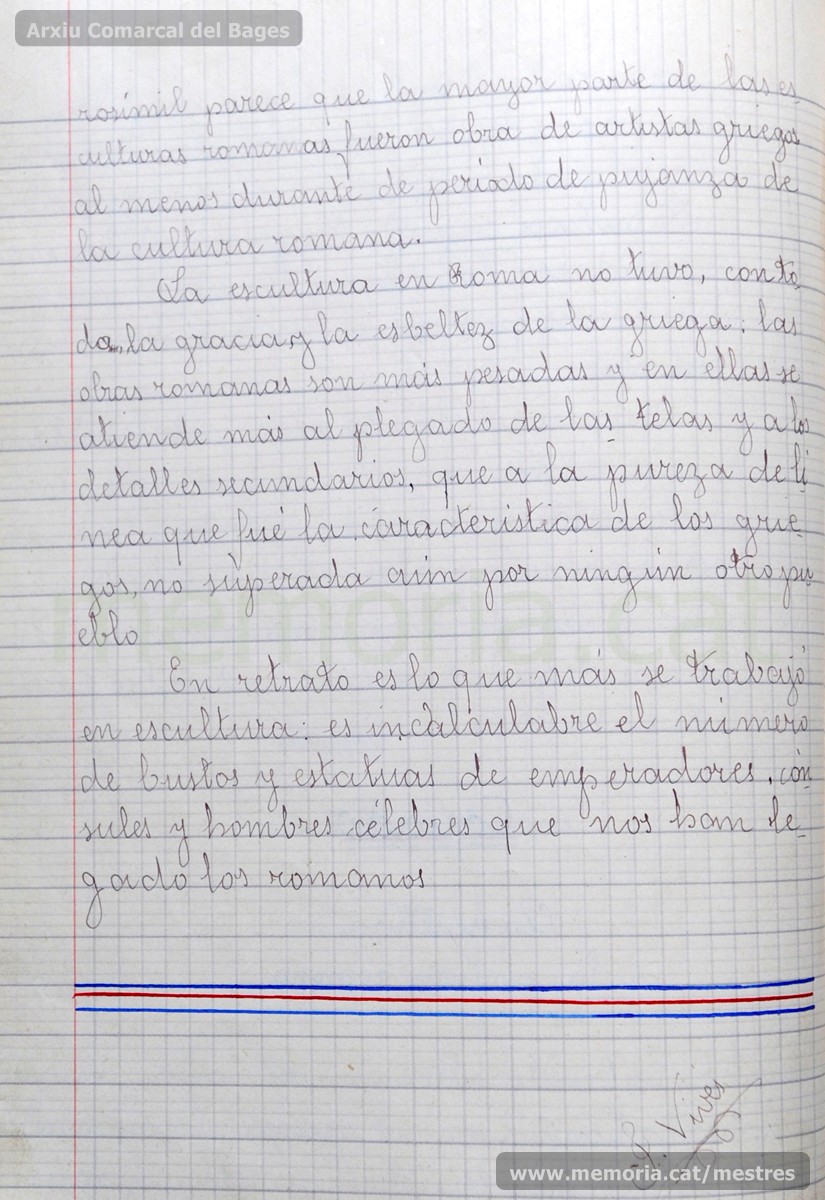 Arxiu Comarcal del Bages
rosimil parece que la mayor parte de las es
culturas romanas fueron obra de artistas griegos
al menos durante de período de pujanza de
la cultura romana.
La escultura en Roma no tuvo, con to
da, la gracia y la esbeltez de la griega; las
obras romanas son más pesadas y en ellas se
atiende más al plegado de las telas y a los
detalles secundarios, que a la pureza de lí
nea que fué la caracteristica de los grie
gos, no superada aún por ningún otro pu
eblo
En retrato es lo que más se trabajó
en escultura: es incalculabre el número
de bustos y estatuas de emperadores, cón
sules y hombres célebres que nos han le
gado los romanos
Vives
www.memoria.cat/mestres